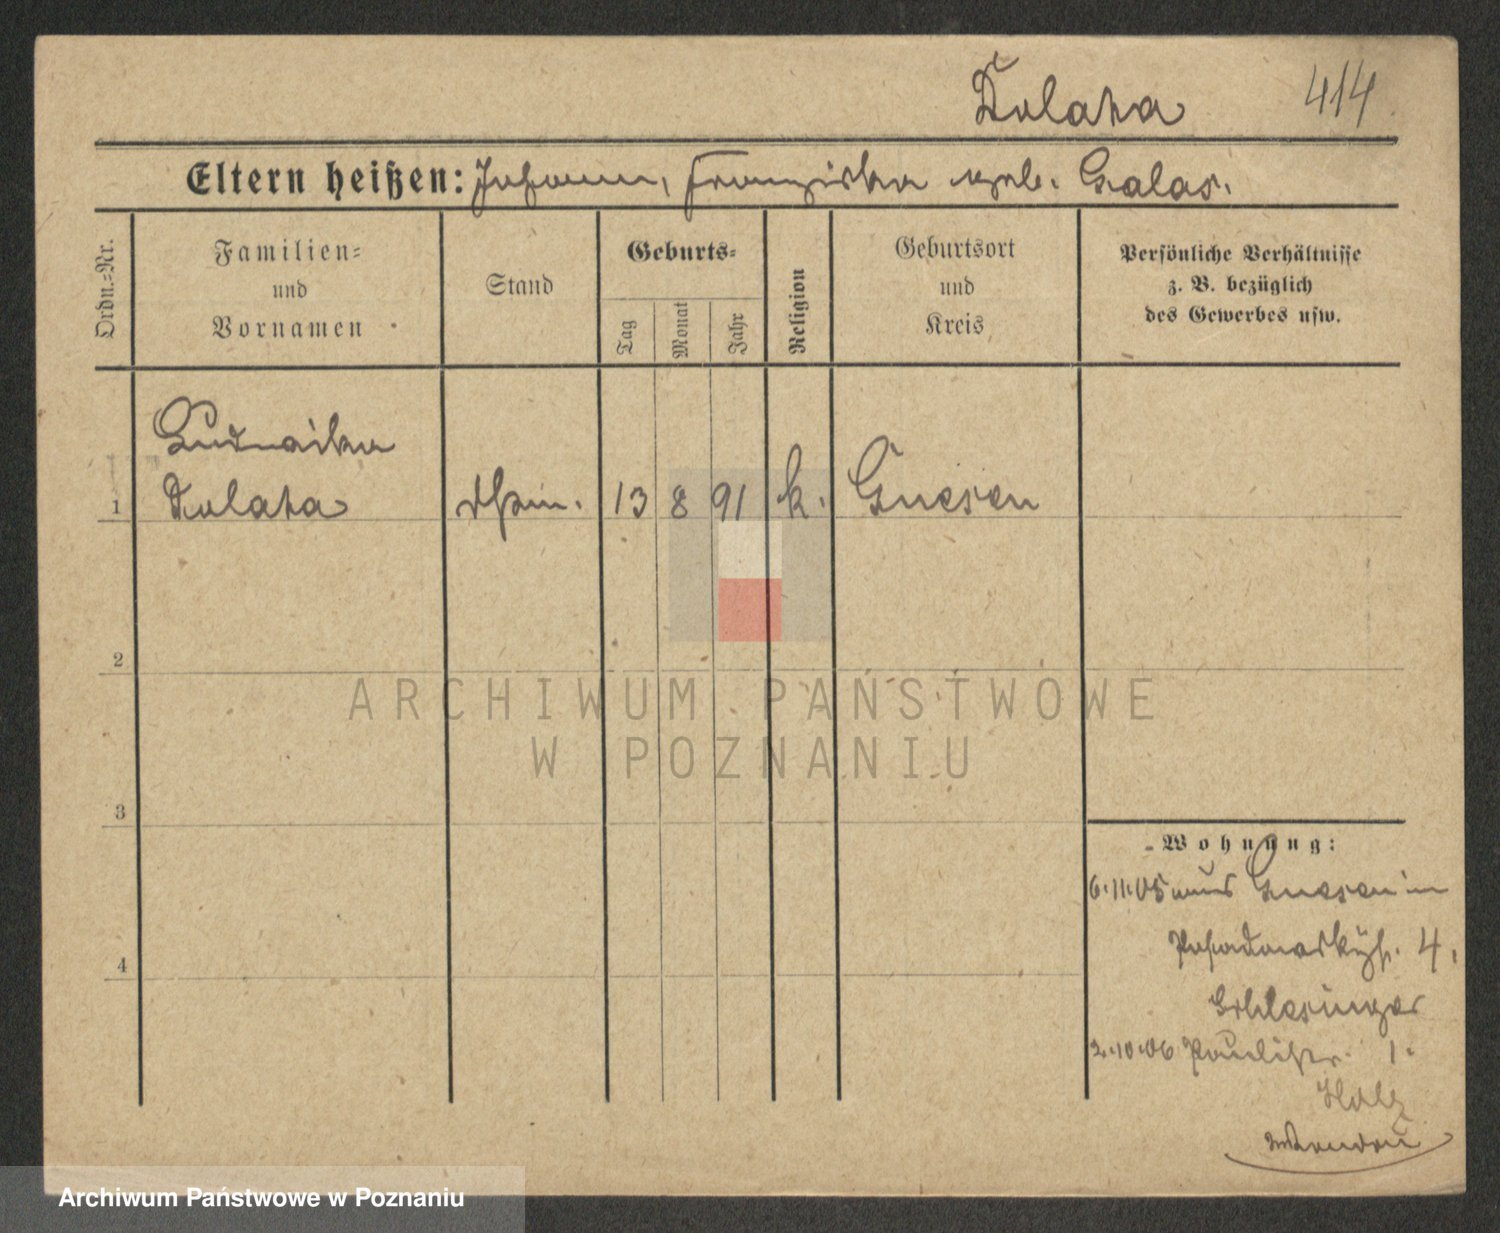 Dolata 414
Eltern heißen: Johann, Franziska geb. Galas.
Ordn.-Nr.
Familien-
und
Vornamen
Stand
Geburts-
Tag
Monat
Jahr
Religion
Geburtsort
und
Kreis
Persönliche Verhältnisse
z. B. bezüglich
des Gewerbes usw.
Ludwika
1 Dolata 13 8 91 k. Gnesen
2
3
4
Wohnung:
6.11.05 aus Gnesen in
4.
Schlesinger
2.10.06 Paulistr. 1.
Holz
ARCHIWUM PAŃSTWOWE
W POZNANIU
Archiwum Państwowe w Poznaniu